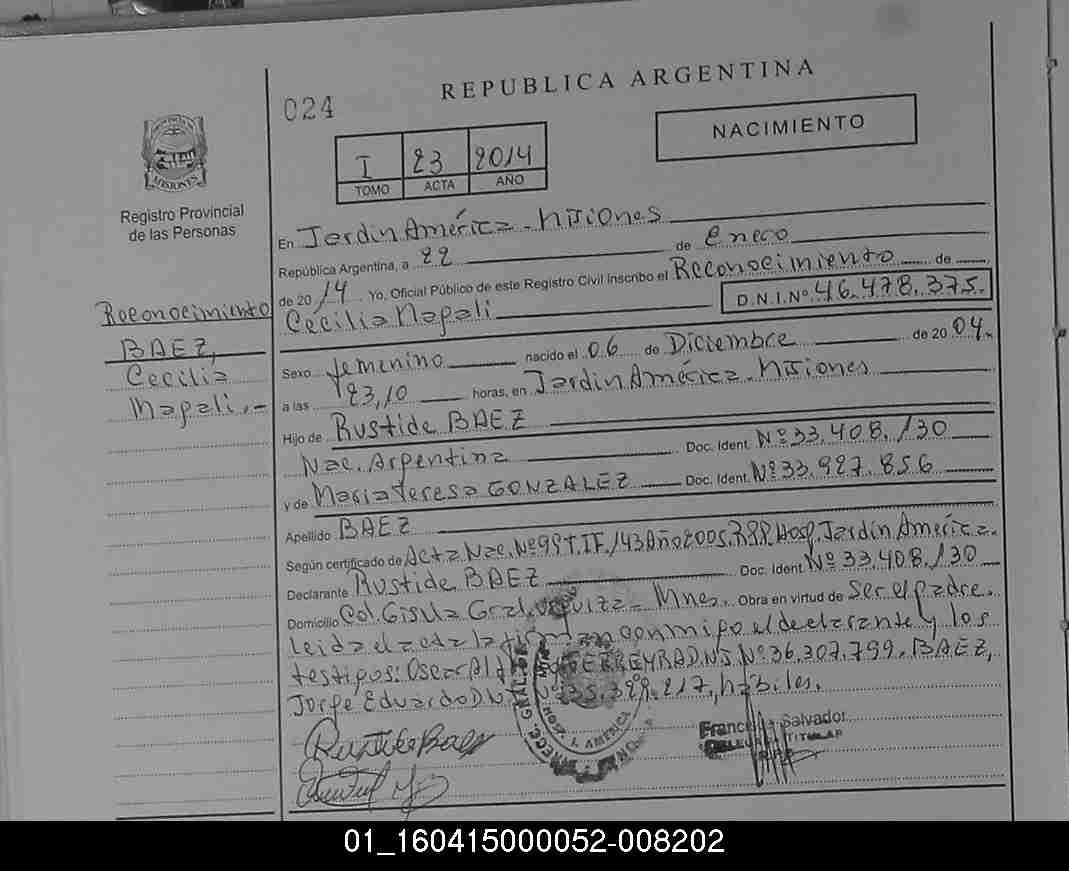 REPUBLICA ARGENTINA
024
NACIMIENTO
I 23 2014
TOMO ACTA AÑO
MISIONES
Registro Provincial
de las Personas
En Jardin América - Misiones
República Argentina, a 22 de Enero
de 2014 Yo, Oficial Público de este Registro Civil inscribo el Reconocimiento de
Cecilia Magali D.N.I.Nº 46.478.375.
Reconocimiento
BAEZ,
Cecilia
Magali.-
Sexo femenino nacido el 06 de Diciembre de 2004.
a las 23,10 horas, en Jardin América - Misiones
Hijo de Rustide BAEZ
Nac. Argentina Doc. Ident. Nº 33.408.130
y de Maria Teresa GONZALEZ Doc. Ident. Nº 33.927.856
Apellido BAEZ
Según certificado de Acta Nac. Nº 99 T.I F. 143 Año 2005. Hosp. Jardin América.
Declarante Rustide BAEZ Doc. Ident. Nº 33.408.130
Domicilio Col. Gisela Gral. Urquiza - Mnes. Obra en virtud de ser el padre.
Leida el acta la firman conmigo el declarante y los
testigos: Oscar D.N.I. Nº 36.307.799. BAEZ,
Jorge Eduardo D.N.I. Nº 35.329.217, hábiles.
Rustide Baez
Salvador
TITULAR
01_160415000052-008202